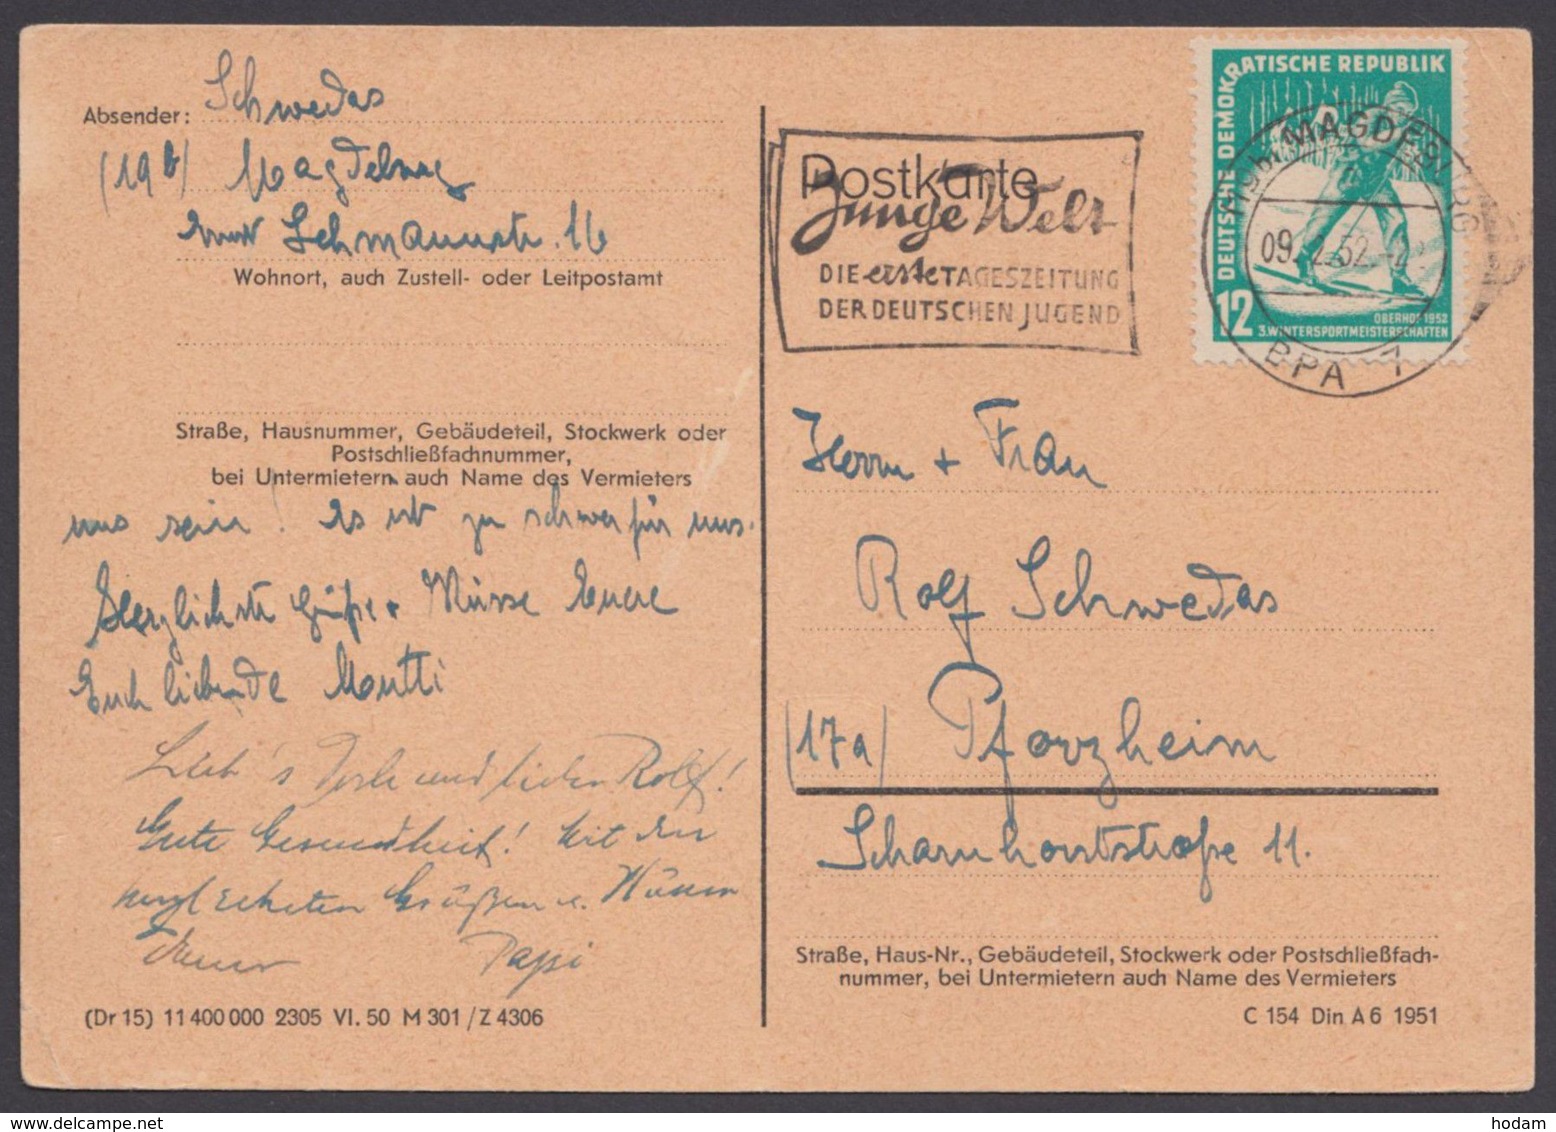 Absender: Schwedas
(19b) Magdeburg
Lehmannstr. 16
Wohnort, auch Zustell- oder Leitpostamt
Straße, Hausnummer, Gebäudeteil, Stockwerk oder
Postschließfachnummer,
bei Untermietern auch Name des Vermieters
uns sein! Es ist zu schwer für uns.
Herzlichste Grüße + Küsse Eure
Euch liebende Mutti
und lieber Rolf!
Gute Gesundheit! Mit den
herzl Grüßen u. Küssen
Euer Papi
(Dr 15) 11 400 000 2305 VI. 50 M 301 / Z 4306
Postkarte
Junge Welt
DIE erste TAGESZEITUNG
DER DEUTSCHEN JUGEND
DEUTSCHE DEMOKRATISCHE REPUBLIK
12
OBERHOF 1952
3. WINTERSPORTMEISTERSCHAFTEN
(19b) MAGDEBURG
BPA 1
Herrn + Frau
Rolf Schwedas
(17a) Pforzheim
Scharnhorststraße 11.
Straße, Haus-Nr., Gebäudeteil, Stockwerk oder Postschließfach-
nummer, bei Untermietern auch Name des Vermieters
C 154 Din A 6 1951
hodam